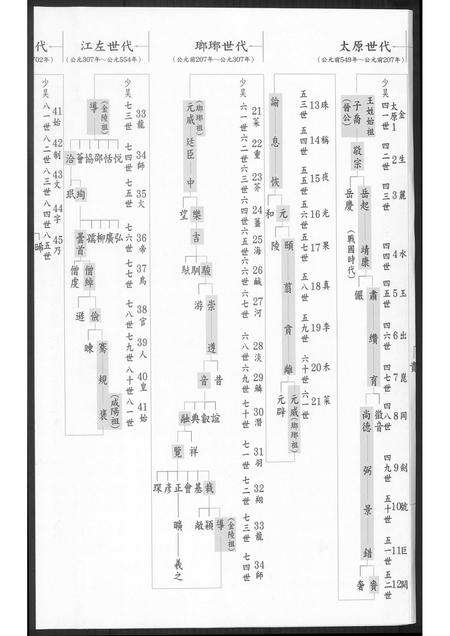 太原世代
(公元前549年～公元前207年)
少昊
四一世
四二世
四三世
四四世
四五世
四六世
四七世
四八世
四九世
五十世
五一世
五二世
太原
1金
2生
3麗
4水
5玉
6出
7崑
8岡
9劍
10號
11巨
12闕
王姓始祖
子喬
(晉公)
敬宗
岳起
岳慶
靖康
(戰國時代)
肅
儼
缵
育
徵音
尚德
弼
景
錯
賁
奢
五三世
五四世
五五世
五六世
五七世
五八世
五九世
六十世
六一世
13珠
14稱
15夜
16光
17果
18真
19李
20禾
21菜
諭
息
恢
元
和
頤
陵
翦
賁
離
元威
(瑯琊祖)
元辟
瑯瑯世代
(公元前207年～公元307年)
少昊
六一世
六二世
六三世
六四世
六五世
六六世
六七世
六八世
六九世
七十世
七一世
七二世
七三世
七四世
21菜
22重
23芥
24薑
25海
26鹹
27河
28淡
29鱗
30潛
31羽
32翔
33龍
34師
(瑯琊祖)
元威
廷臣
中
樂
望
吉
駿
馴
崇
游
遵
昔
音
誼
叡
典
融
祥
覽
裁
基
會
正
彥
琛
導
(金陵祖)
穎
敞
曠
義之
江左世代
(公元307年～公元554年)
少昊
七三世
七四世
七五世
七六世
七七世
七八世
七九世
八十世
八一世
33龍
34師
35火
36帝
37鳥
38官
39人
40皇
41始
導
(金陵祖)
悅
恬
邵
協
薈
洽
珣
珉
弘
廣
柳
孺
曇首
僧綽
僧虔
儉
遜
騫
暕
規
褒
(咸陽祖)
代
702年)
少昊
八一世
八二世
八三世
八四世
八五世
41始
42制
43文
44字
45乃